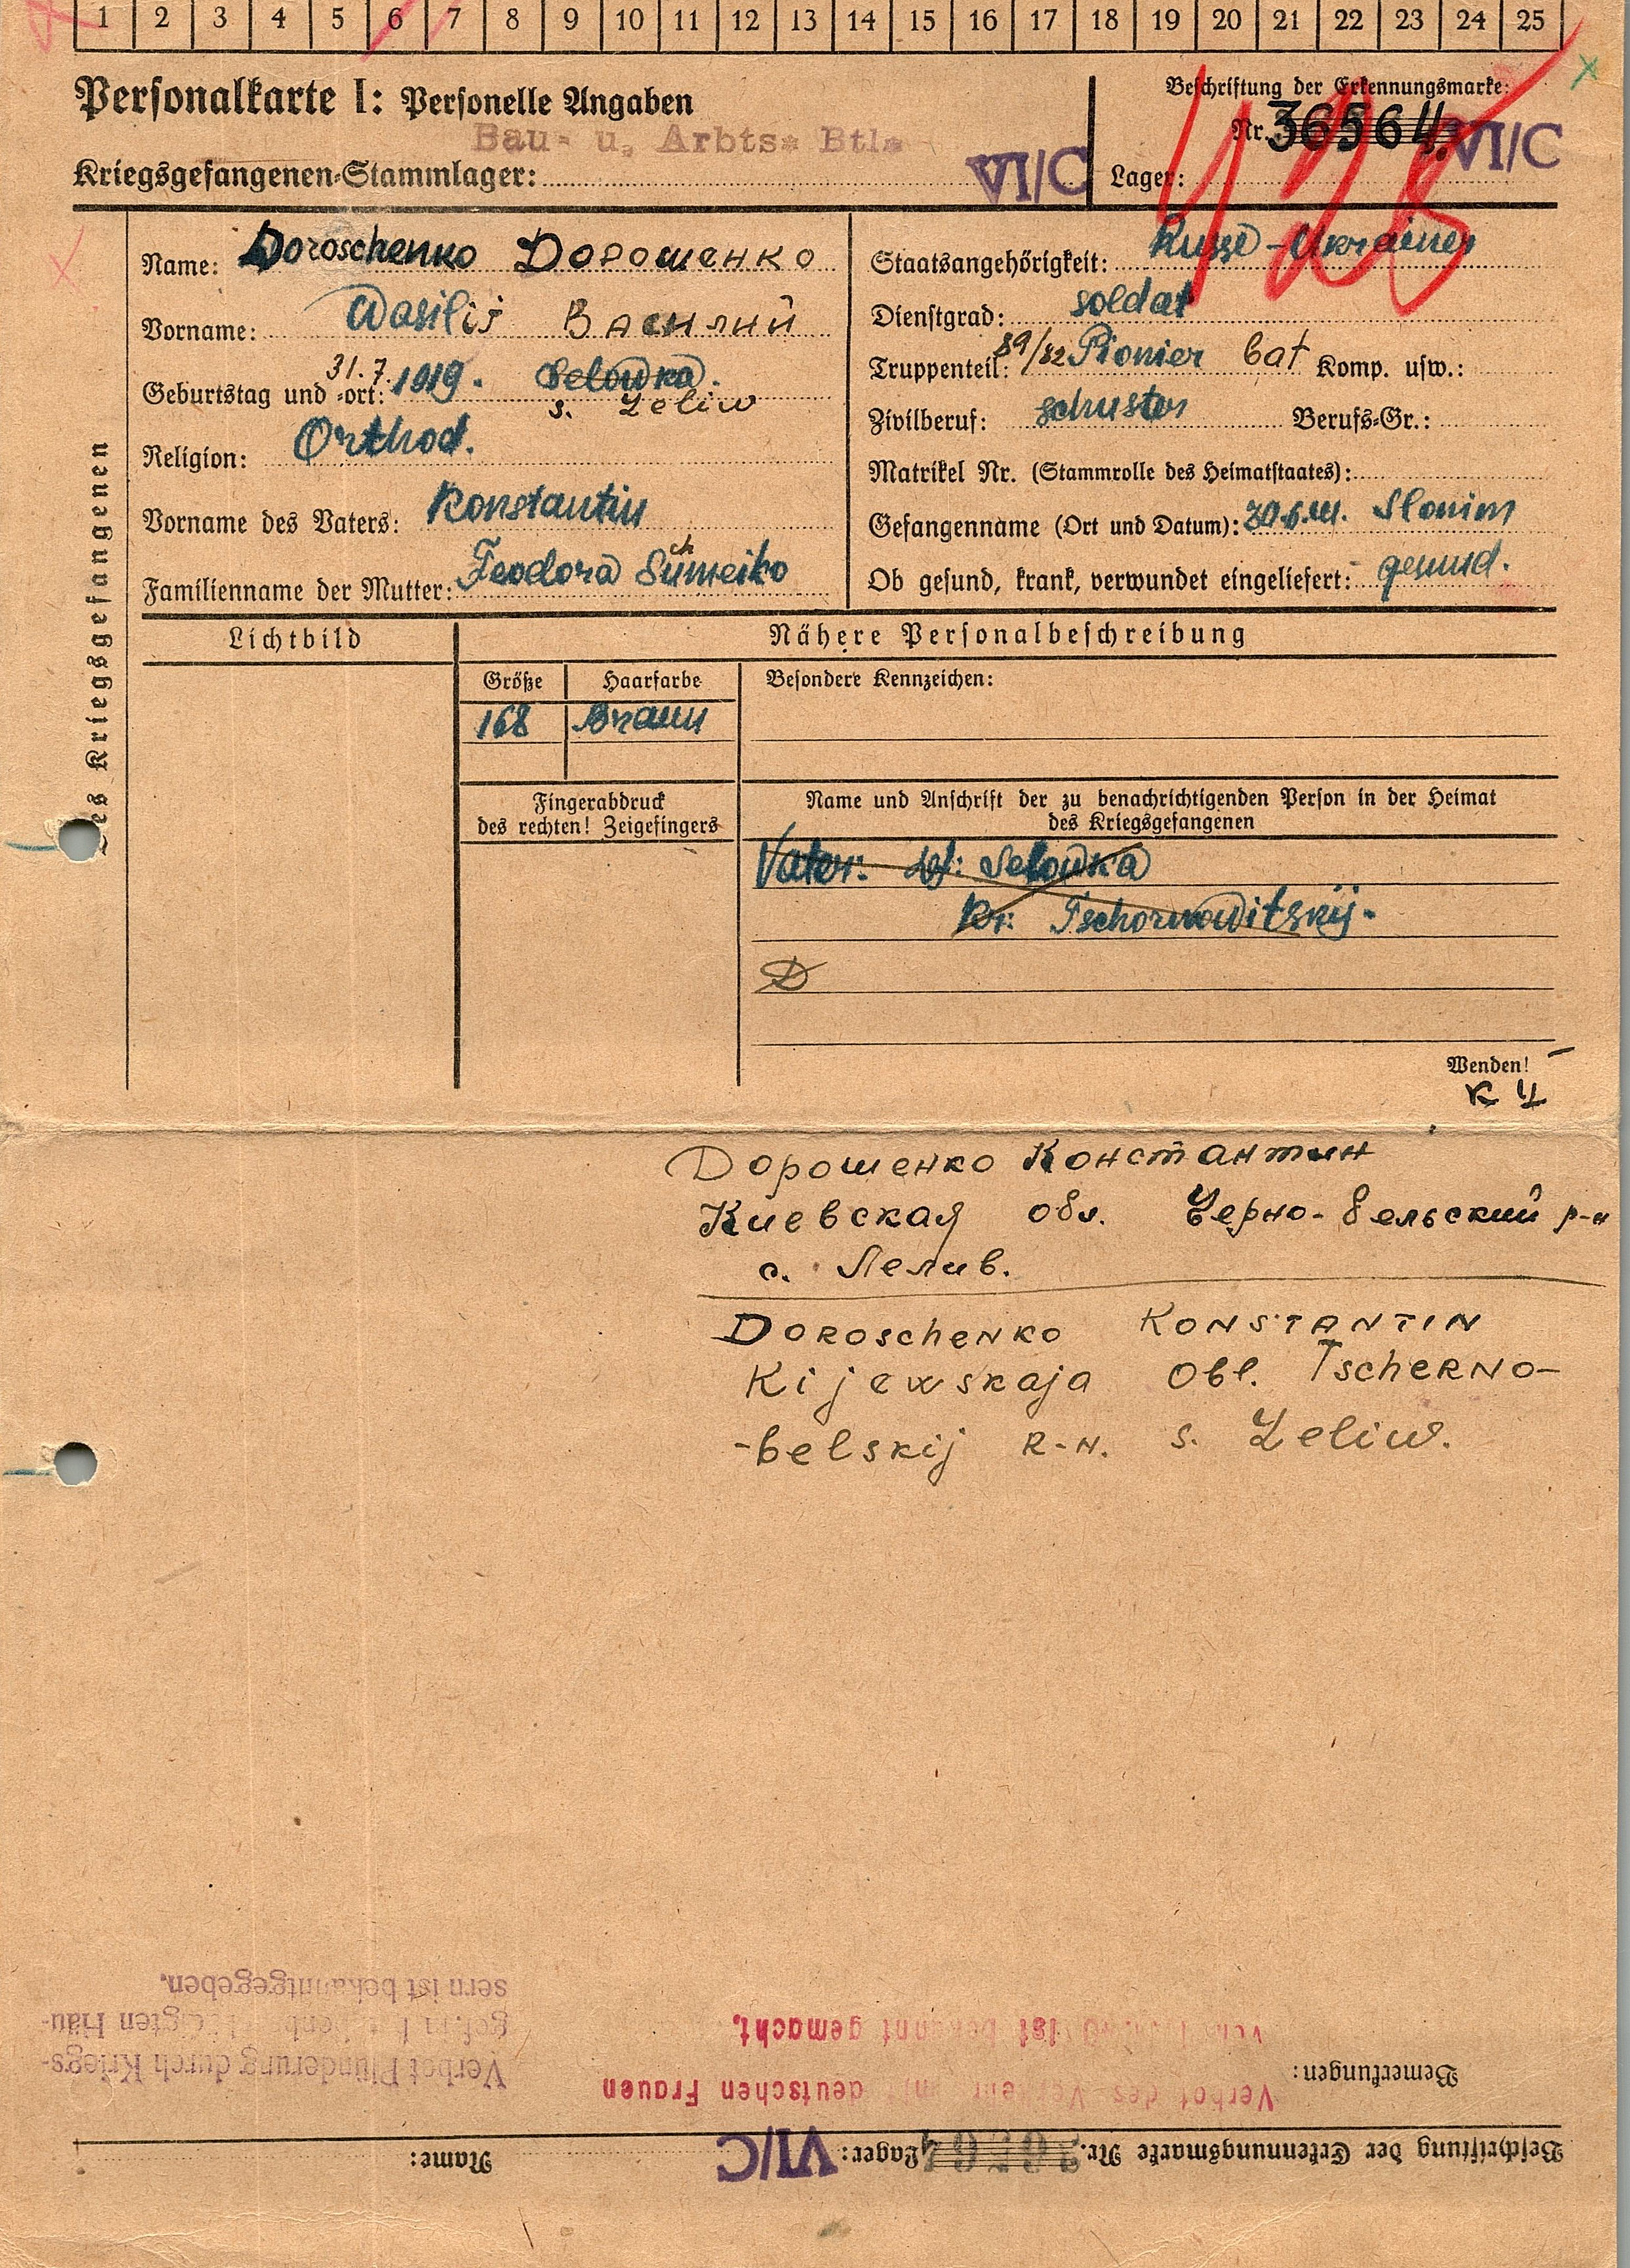 1 2 3 4 5 6 7 8 9 10 11 12 13 14 15 16 17 18 19 20 21 22 23 24 25
Personalkarte I: Personelle Angaben
Bau- u. Arbts- Btl.
Kriegsgefangenen-Stammlager: VI/C
Beschriftung der Erkennungsmarke:
Nr. 36564. VI/C
Lager:
des Kriegsgefangenen
Name: Doroschenko Дорошенко
Vorname: Wasilij Василий
31.7.
Geburtstag und -ort: 1919. Selowka.
s. Leliw
Religion: Orthod.
Vorname des Vaters: Konstantin
ch
Familienname der Mutter: Feodora Sumeiko
Staatsangehörigkeit: Russe-Ukrainer
Dienstgrad: soldat
Truppenteil: 89/82 Pionier bat Komp. usw.:
Zivilberuf: schuster Berufs-Gr.:
Matrikel Nr. (Stammrolle des Heimatstaates):
Gefangenname (Ort und Datum): 30.6.41. Slonim
Ob gesund, krank, verwundet eingeliefert: gesund.
Lichtbild
Nähere Personalbeschreibung
Größe Haarfarbe Besondere Kennzeichen:
168 Braun
Fingerabdruck
des rechten! Zeigefingers
Name und Anschrift der zu benachrichtigenden Person in der Heimat
des Kriegsgefangenen
Vater: df: Selowka
Kr: Tschornowitskij.
D
Wenden!
Дорошенко Константин
Киевская обл. Черно-бельский р-н
с. Лелив.
Doroschenko Konstantin
Kijewskaja Obl. Tscherno-
-belskij R-n. s. Leliw.
Beschriftung der Erkennungsmarke Nr. 36564 Lager: VI/C Name:
Bemerkungen:
Verbot des Verkehr mit deutschen Frauen
ist bekannt gemacht.
Verbot Plünderung durch Kriegs-
gef. in Häu-
sern ist bekanntgegeben.